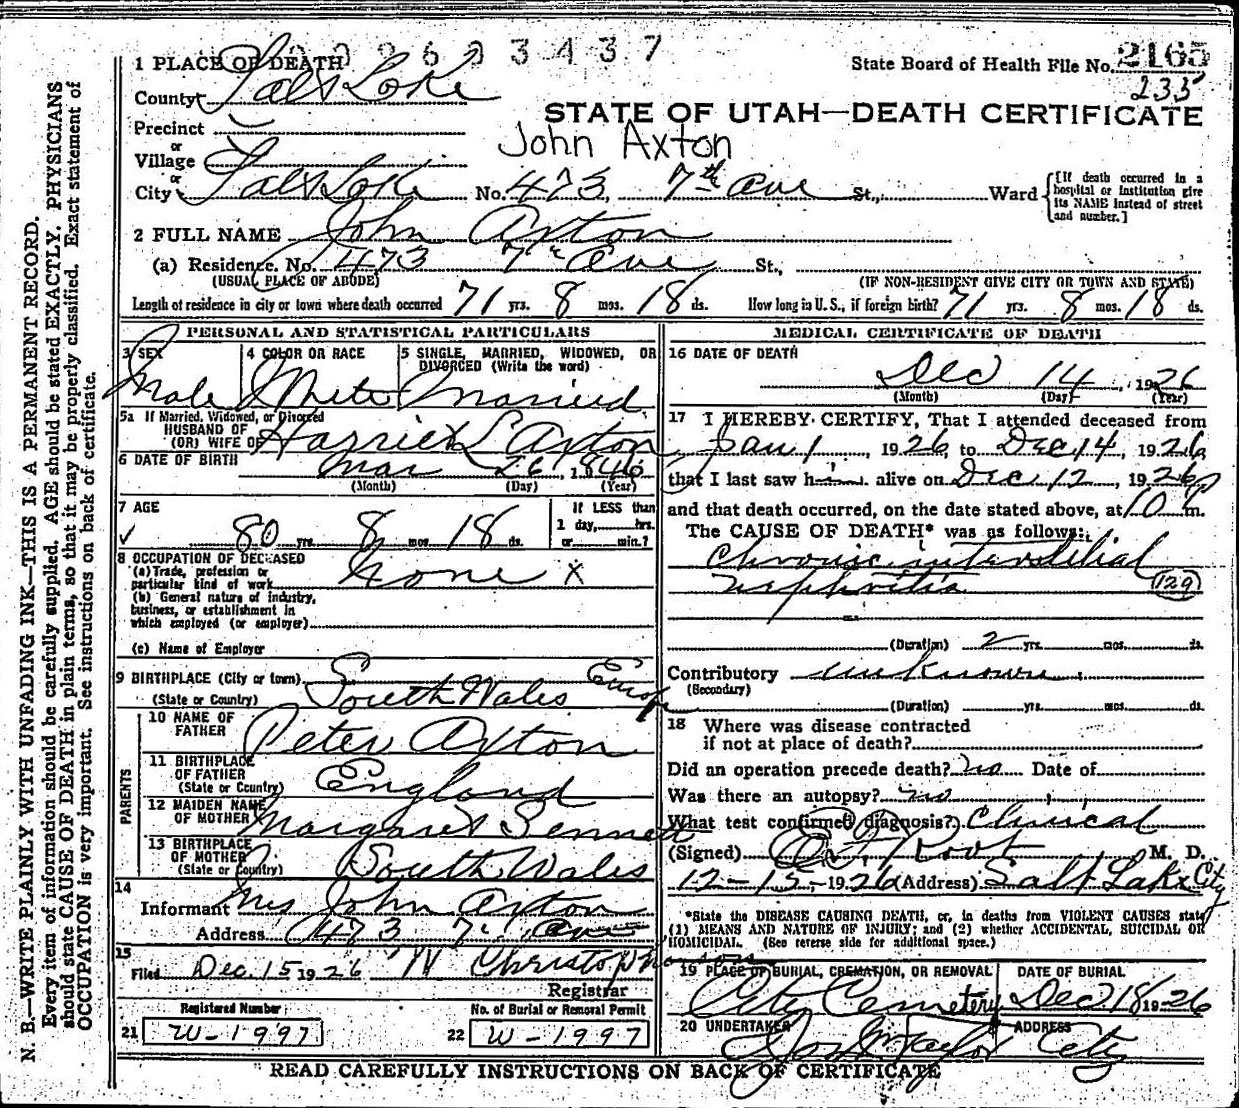 2 6 2 3 4 3 7
1 PLACE OF DEATH
State Board of Health File No. 2165
235
County Salt Lake
STATE OF UTAH—DEATH CERTIFICATE
Precinct
John Axton
or
Village
or
City Salt Lake No. 473, 7th Ave St., Ward
[If death occurred in a
hospital or institution give
its NAME instead of street
and number.]
2 FULL NAME John Axton
(a) Residence. No. 473 7th Ave St.,
(USUAL PLACE OF ABODE) (IF NON-RESIDENT GIVE CITY OR TOWN AND STATE)
Length of residence in city or town where death occurred 71 yrs. 8 mos. 18 ds. How long in U. S., if foreign birth? 71 yrs. 8 mos. 18 ds.
PERSONAL AND STATISTICAL PARTICULARS
3 SEX 4 COLOR OR RACE 5 SINGLE, MARRIED, WIDOWED, OR
DIVORCED (Write the word)
Male White Married
5a If Married, Widowed, or Divorced
HUSBAND OF
(OR) WIFE OF Harriet L Axton
6 DATE OF BIRTH Mar 26, 1846
(Month) (Day) (Year)
7 AGE If LESS than
1 day, hrs.
80 yrs. 8 mos. 18 ds. or min.?
8 OCCUPATION OF DECEASED
(a) Trade, profession or
particular kind of work None X
(b) General nature of industry,
business, or establishment in
which employed (or employer)
(c) Name of Employer
9 BIRTHPLACE (City or town)
(State or Country) South Wales Europe
PARENTS
10 NAME OF
FATHER Peter Axton
11 BIRTHPLACE
OF FATHER
(State or Country) England
12 MAIDEN NAME
OF MOTHER Margaret Bennett
13 BIRTHPLACE
OF MOTHER
(State or Country) South Wales
14
Informant Mrs John Axton
Address 473 7th Ave
15
Filed Dec. 15 1926
Registrar
Registered Number No. of Burial or Removal Permit
21 W-1997 22 W-1997
MEDICAL CERTIFICATE OF DEATH
16 DATE OF DEATH
Dec 14, 1926
(Month) (Day) (Year)
17 I HEREBY CERTIFY, That I attended deceased from
Jan 1, 1926, to Dec 14, 1926
that I last saw him alive on Dec 12, 1926
and that death occurred, on the date stated above, at 10 p m.
The CAUSE OF DEATH* was as follows:
Chronic interstitial
nephritis (129)
(Duration) 2 yrs. mos. ds.
Contributory unknown
(Secondary)
(Duration) yrs. mos. ds.
18 Where was disease contracted
if not at place of death?
Did an operation precede death? no Date of
Was there an autopsy? no
What test confirmed diagnosis? Clinical
(Signed) Root M. D.
12-15-1926 (Address) Salt Lake City
*State the DISEASE CAUSING DEATH, or, in deaths from VIOLENT CAUSES state
(1) MEANS AND NATURE OF INJURY; and (2) whether ACCIDENTAL, SUICIDAL OR
HOMICIDAL. (See reverse side for additional space.)
19 PLACE OF BURIAL, CREMATION, OR REMOVAL DATE OF BURIAL
City Cemetery Dec 18 1926
20 UNDERTAKER ADDRESS
Jos Wm Taylor City
READ CAREFULLY INSTRUCTIONS ON BACK OF CERTIFICATE
N. B.—WRITE PLAINLY WITH UNFADING INK—THIS IS A PERMANENT RECORD.
Every item of information should be carefully supplied. AGE should be stated EXACTLY. PHYSICIANS
should state CAUSE OF DEATH in plain terms, so that it may be properly classified. Exact statement of
OCCUPATION is very important. See instructions on back of certificate.